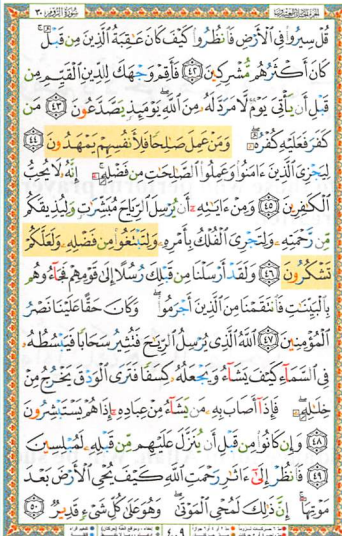 سُورَةُ الرُّومِ ٣٠
قُلْ سِيرُوا۟ فِى ٱلْأَرْضِ فَٱنظُرُوا۟ كَيْفَ كَانَ عَـٰقِبَةُ ٱلَّذِينَ مِن قَبْلُ
كَانَ أَكْثَرُهُم مُّشْرِكِينَ ٤٢ فَأَقِمْ وَجْهَكَ لِلدِّينِ ٱلْقَيِّمِ مِن
قَبْلِ أَن يَأْتِىَ يَوْمٌ لَّا مَرَدَّ لَهُۥ مِنَ ٱللَّهِ يَوْمَئِذٍ يَصَّدَّعُونَ ٤٣ مَن
كَفَرَ فَعَلَيْهِ كُفْرُهُۥ وَمَنْ عَمِلَ صَـٰلِحًا فَلِأَنفُسِهِمْ يَمْهَدُونَ ٤٤
لِيَجْزِىَ ٱلَّذِينَ ءَامَنُوا۟ وَعَمِلُوا۟ ٱلصَّـٰلِحَـٰتِ مِن فَضْلِهِۦٓ إِنَّهُۥ لَا يُحِبُّ
ٱلْكَـٰفِرِينَ ٤٥ وَمِنْ ءَايَـٰتِهِۦٓ أَن يُرْسِلَ ٱلرِّيَاحَ مُبَشِّرَٰتٍ وَلِيُذِيقَكُم
مِّن رَّحْمَتِهِۦ وَلِتَجْرِىَ ٱلْفُلْكُ بِأَمْرِهِۦ وَلِتَبْتَغُوا۟ مِن فَضْلِهِۦ وَلَعَلَّكُمْ
تَشْكُرُونَ ٤٦ وَلَقَدْ أَرْسَلْنَا مِن قَبْلِكَ رُسُلًا إِلَىٰ قَوْمِهِمْ فَجَآءُوهُم
بِٱلْبَيِّنَـٰتِ فَٱنتَقَمْنَا مِنَ ٱلَّذِينَ أَجْرَمُوا۟ وَكَانَ حَقًّا عَلَيْنَا نَصْرُ
ٱلْمُؤْمِنِينَ ٤٧ ٱللَّهُ ٱلَّذِى يُرْسِلُ ٱلرِّيَـٰحَ فَتُثِيرُ سَحَابًا فَيَبْسُطُهُۥ
فِى ٱلسَّمَآءِ كَيْفَ يَشَآءُ وَيَجْعَلُهُۥ كِسَفًا فَتَرَى ٱلْوَدْقَ يَخْرُجُ مِنْ
خِلَـٰلِهِۦ فَإِذَآ أَصَابَ بِهِۦ مَن يَشَآءُ مِنْ عِبَادِهِۦٓ إِذَا هُمْ يَسْتَبْشِرُونَ
٤٨ وَإِن كَانُوا۟ مِن قَبْلِ أَن يُنَزَّلَ عَلَيْهِم مِّن قَبْلِهِۦ لَمُبْلِسِينَ
٤٩ فَٱنظُرْ إِلَىٰٓ ءَاثَـٰرِ رَحْمَتِ ٱللَّهِ كَيْفَ يُحْىِ ٱلْأَرْضَ بَعْدَ
مَوْتِهَآ إِنَّ ذَٰلِكَ لَمُحْىِ ٱلْمَوْتَىٰ وَهُوَ عَلَىٰ كُلِّ شَىْءٍ قَدِيرٌ ٥٠
٤٠٩